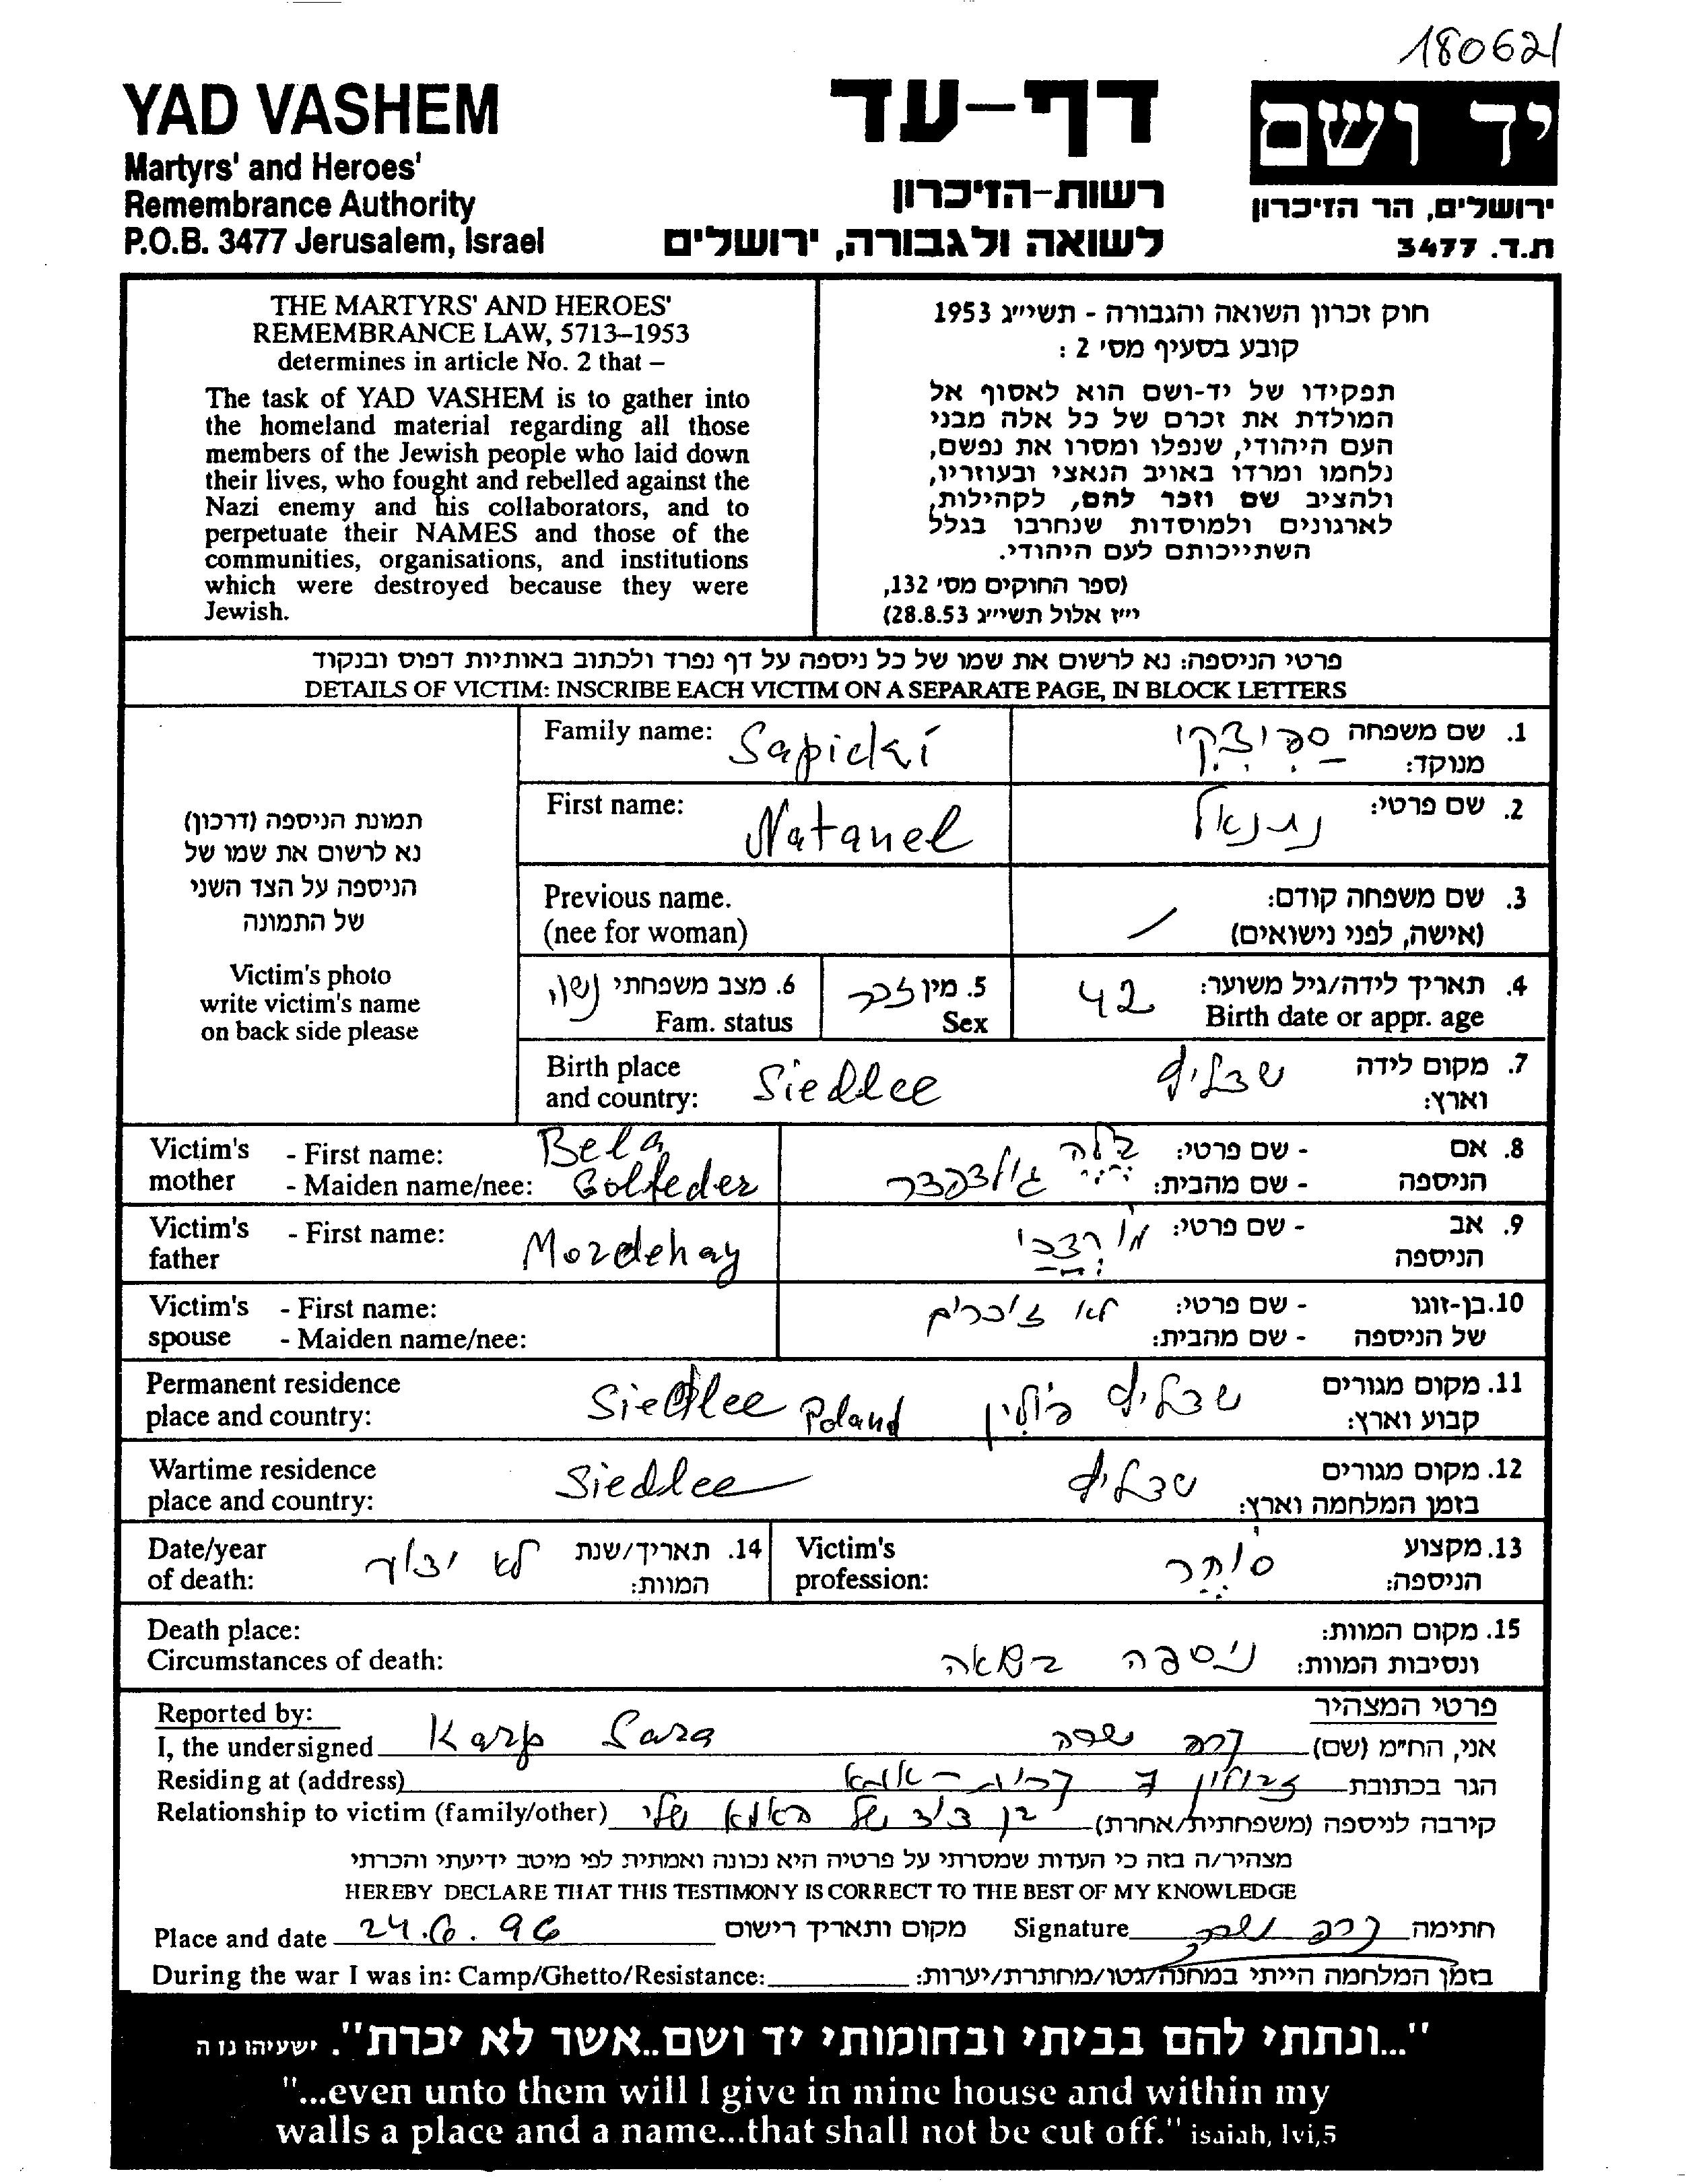 180621
YAD VASHEM
Martyrs' and Heroes'
Remembrance Authority
P.O.B. 3477 Jerusalem, Israel
דף-עד
רשות-הזיכרון
לשואה ולגבורה, ירושלים
יד ושם
ירושלים, הר הזיכרון
ת.ד. 3477
THE MARTYRS' AND HEROES'
REMEMBRANCE LAW, 5713–1953
determines in article No. 2 that –
The task of YAD VASHEM is to gather into
the homeland material regarding all those
members of the Jewish people who laid down
their lives, who fought and rebelled against the
Nazi enemy and his collaborators, and to
perpetuate their NAMES and those of the
communities, organisations, and institutions
which were destroyed because they were
Jewish.
חוק זכרון השואה והגבורה - תשי״ג 1953
קובע בסעיף מס' 2 :
תפקידו של יד-ושם הוא לאסוף אל
המולדת את זכרם של כל אלה מבני
העם היהודי, שנפלו ומסרו את נפשם,
נלחמו ומרדו באויב הנאצי ובעוזריו,
ולהציב שם וזכר להם, לקהילות,
לארגונים ולמוסדות שנחרבו בגלל
השתייכותם לעם היהודי.
(ספר החוקים מס' 132,
י״ז אלול תשי״ג 28.8.53)
פרטי הניספה: נא לרשום את שמו של כל ניספה על דף נפרד ולכתוב באותיות דפוס ובנקוד
DETAILS OF VICTIM: INSCRIBE EACH VICTIM ON A SEPARATE PAGE, IN BLOCK LETTERS
תמונת הניספה (דרכון)
נא לרשום את שמו של
הניספה על הצד השני
של התמונה
Victim's photo
write victim's name
on back side please
Family name: Sapicki
1. שם משפחה מנוקד: ספיצקי
First name: Natanel
2. שם פרטי: נתנאל
Previous name.
(nee for woman)
3. שם משפחה קודם:
(אישה, לפני נישואים)
6. מצב משפחתי נשוי
Fam. status
5. מין זכר
Sex
4. תאריך לידה/גיל משוער: 42
Birth date or appr. age
Birth place
and country: Siedlce
7. מקום לידה
וארץ: שדליץ
Victim's mother - First name: Bela
- Maiden name/nee: Golfeder
8. אם הניספה - שם פרטי: בלה
- שם מהבית: גולדפדר
Victim's father - First name: Mordehay
9. אב הניספה - שם פרטי: מורדכי
Victim's spouse - First name:
- Maiden name/nee:
10. בן-זוגו של הניספה - שם פרטי: לא זוכרים
- שם מהבית:
Permanent residence
place and country: Siedlce Poland
11. מקום מגורים
קבוע וארץ: שדליץ פולין
Wartime residence
place and country: Siedlce
12. מקום מגורים
בזמן המלחמה וארץ: שדליץ
Date/year
of death:
14. תאריך/שנת
המוות: לא ידוע
Victim's
profession:
13. מקצוע
הניספה: סוחר
Death place:
Circumstances of death:
15. מקום המוות:
ונסיבות המוות: ניספה בשואה
Reported by:
פרטי המצהיר
I, the undersigned Karp Sara
אני, הח״מ (שם) קרפ שרה
Residing at (address)
הגר בכתובת זבולון 7 קרית-אתא
Relationship to victim (family/other)
קירבה לניספה (משפחתית/אחרת) בן דוד של אמא שלי
מצהיר/ה בזה כי העדות שמסרתי על פרטיה היא נכונה ואמתית לפי מיטב ידיעתי והכרתי
HEREBY DECLARE THAT THIS TESTIMONY IS CORRECT TO THE BEST OF MY KNOWLEDGE
Place and date 24.6.96 מקום ותאריך רישום
Signature קרפ שרה חתימה
During the war I was in: Camp/Ghetto/Resistance:
בזמן המלחמה הייתי במחנה/גטו/מחתרת/יערות:
"...ונתתי להם בביתי ובחומותי יד ושם..אשר לא יכרת". ישעיהו נו ה
"...even unto them will I give in mine house and within my
walls a place and a name...that shall not be cut off." isaiah, lvi,5